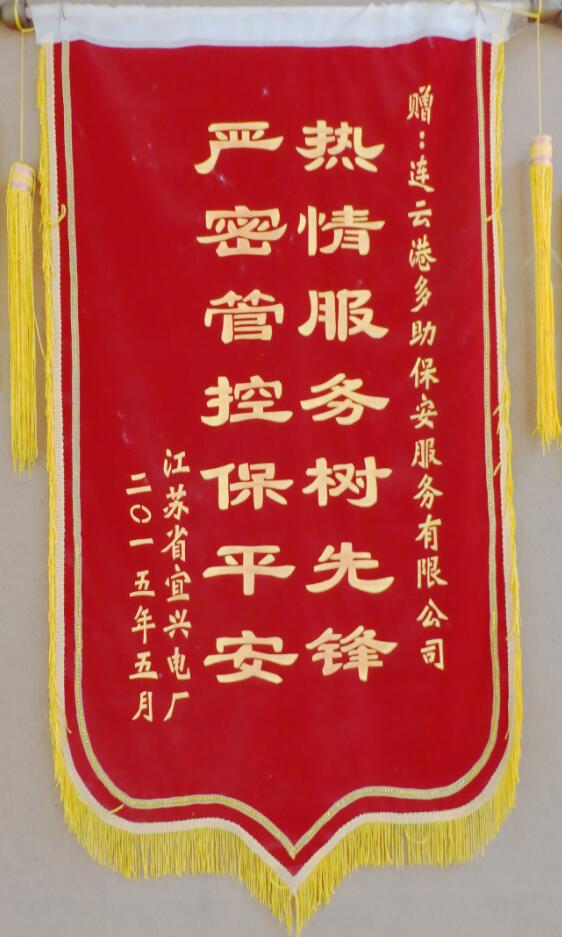 赠：连云港多助保安服务有限公司
热情服务树先锋
严密管控保平安
江苏省宜兴电厂
二〇一五年五月